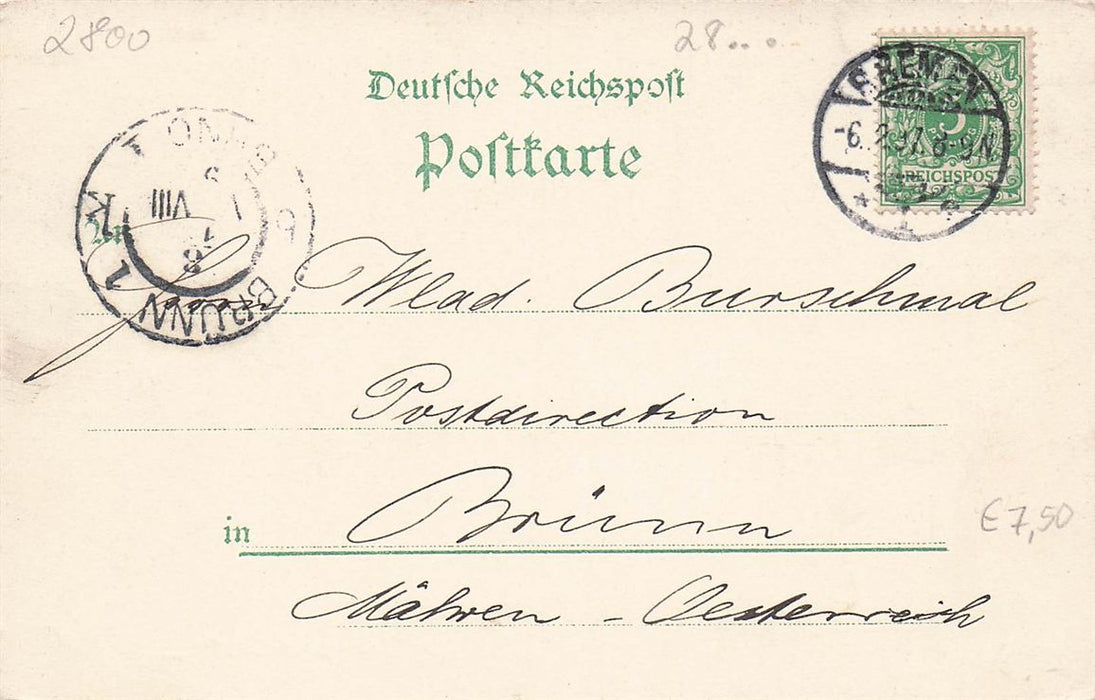 2800
28...
Deutsche Reichspost
Postkarte
BREMEN
5
PFENNIG
REICHSPOST
BRÜNN 1
BRNO 1
VIII
An
Wlad. Burschmal
Postdirection
in Brünn
Mähren - Oesterreich
€ 7,50